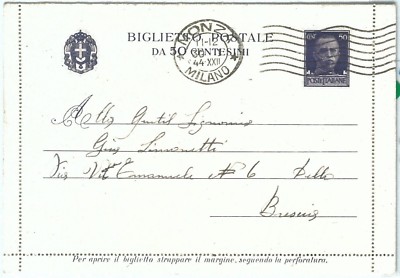 BIGLIETTO POSTALE
DA 50 CENTESIMI
MONZA
11-12
44-XXII
MILANO
50
POSTE ITALIANE
Alla Gentil Signorina
Simonetti
Via Vit Emanuele N° 6
Brescia
Per aprire il biglietto strappare il margine, seguendo la perforatura.